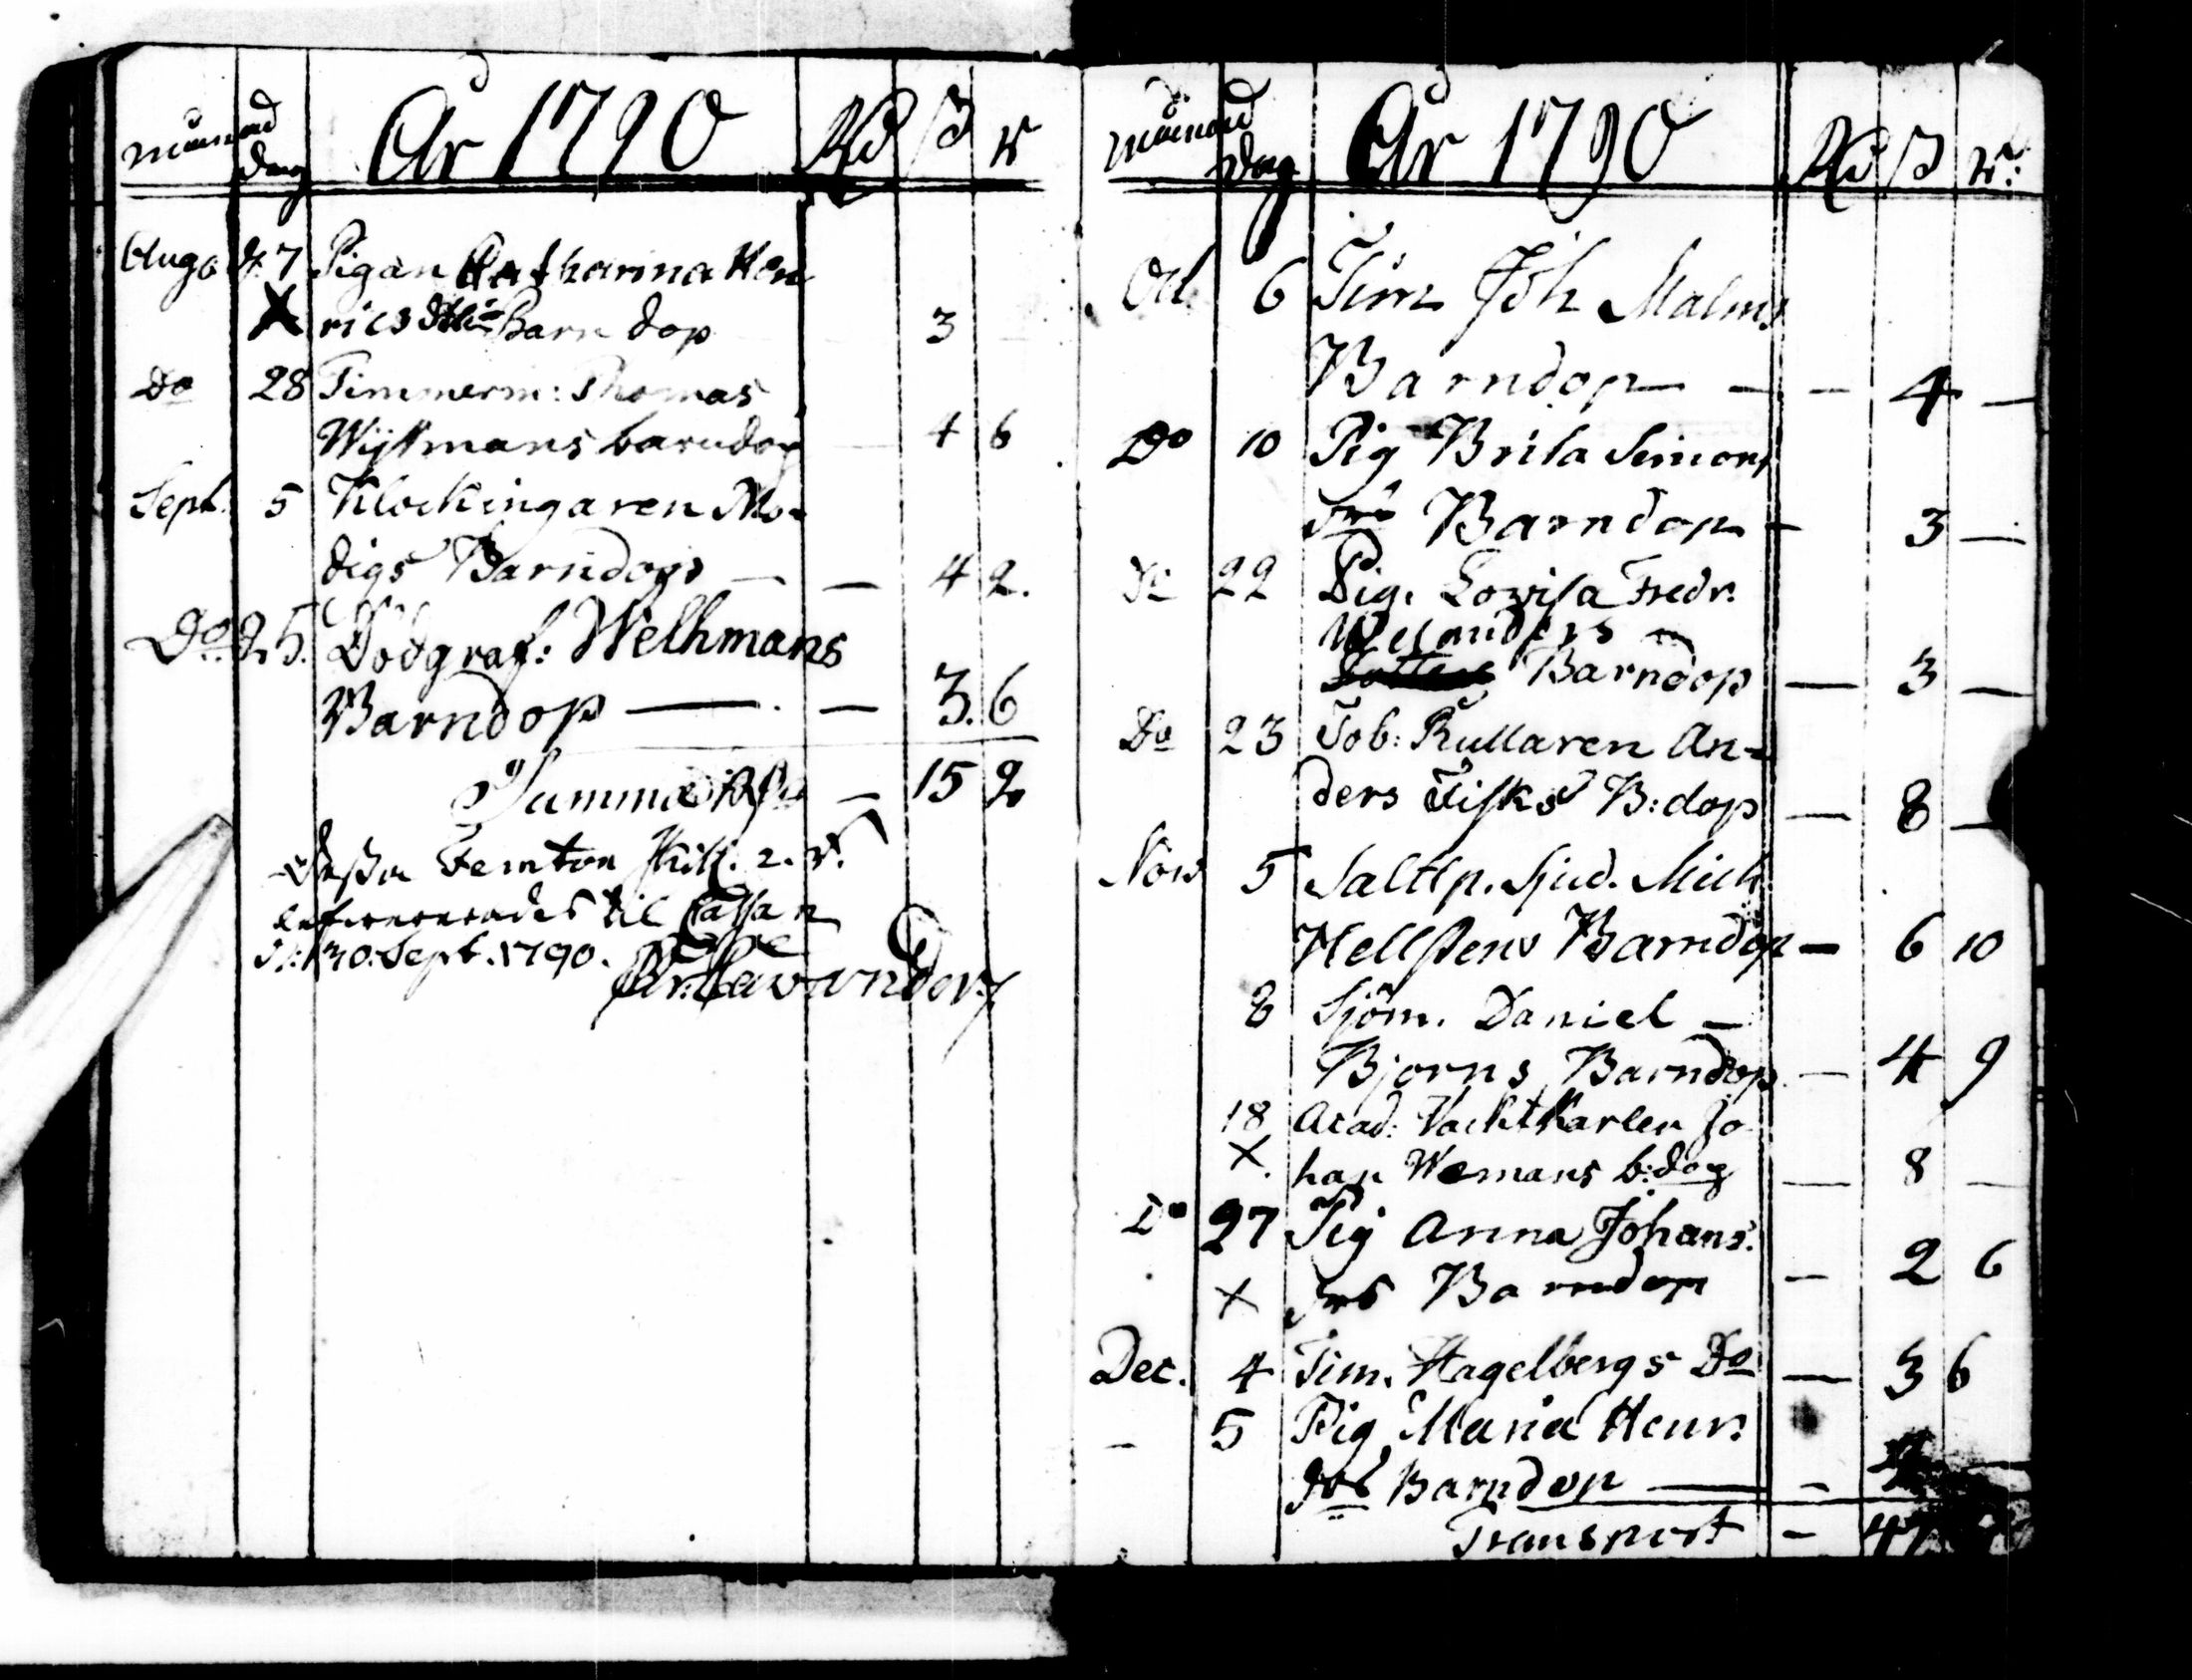 månad dag År 1790 Rd ß r
Aug d. 7 Pigan Catharina Hen
X rics dtrs Barn dop 3
Do 28 Timmerm: Thomas
Wijkmans barndop 4 6
Sept. 5 Klockringaren Mo-
digs Barndop — — 4 2.
Do 25. Dödgraf: Welhmans
Barndop — — 3. 6
Summa Rd — 15 2
Dessa Femton skill. 2. r.
lefwererades til Cassan
d: 30. Sept. 1790.
månad dag År 1790 Rd ß r:
Oct 6 Tim Joh Malms
Barndop — — 4 —
Do 10 Pig Brita Simons
Barndop — 3 —
Do 22 Pig. Lowisa Fredr.
Welanders
Barndop — 3 —
Do 23 Tob: Rullaren An-
ders Fisks B:dop — 8 —
Nov 5 Saltsp. Sjud. Mich.
Hellstens Barndop — 6 10
8 Sjöm. Daniel —
Bjorns Barndop — 4 9
18 Acad: Vacktkarlen Jo
X. han Wemans b:dop — 8 —
Do 27 Pig Anna Johans.
X drs Barndop — 2 6
Dec. 4 Tim. Hagelbergs Do — 3 6
— 5 Pig Maria Henr.
dos Barndop — —
Transport — 47